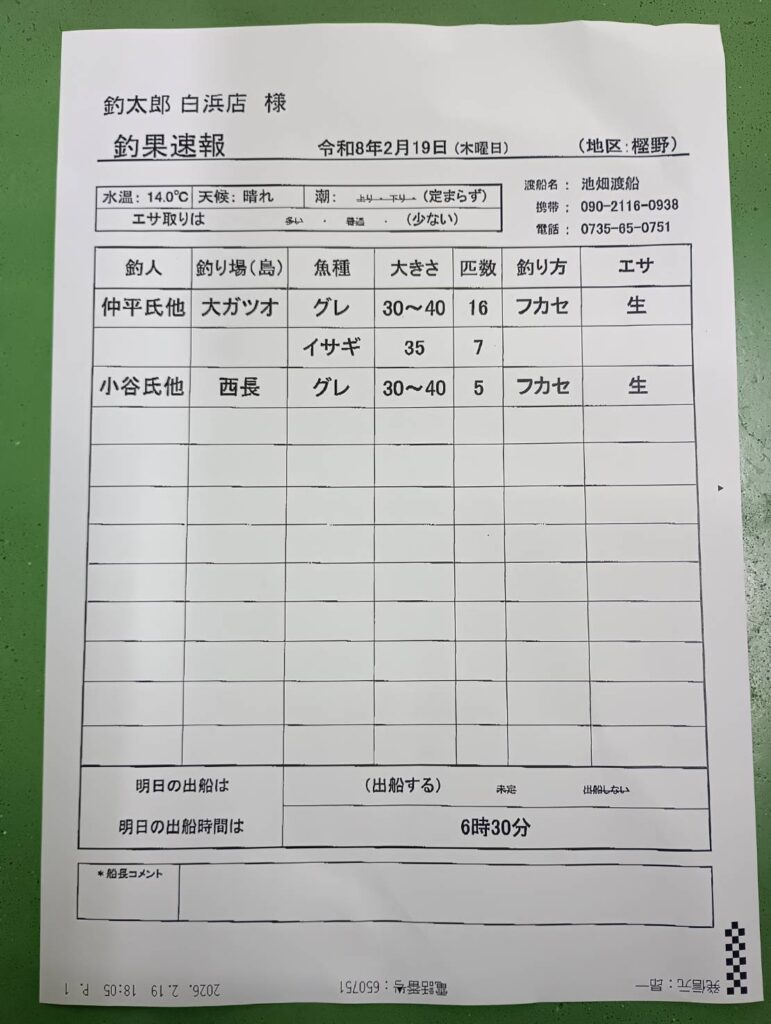 釣太郎 白浜店 様
釣果速報 令和8年2月19日(木曜日) (地区:樫野)
渡船名: 池畑渡船
携帯: 090-2116-0938
電話: 0735-65-0751
水温: 14.0℃ 天候: 晴れ 潮: 上り・下り・(定まらず)
エサ取りは 多い ・ 普通 ・ (少ない)
釣人 釣り場(島) 魚種 大きさ 匹数 釣り方 エサ
仲平氏他 大ガツオ グレ 30〜40 16 フカセ 生
イサギ 35 7
小谷氏他 西長 グレ 30〜40 5 フカセ 生
明日の出船は (出船する) 未定 出船しない
明日の出船時間は 6時30分
*船長コメント
発信元:昴一 電話番号:650751 2026. 2.19 18:05 P. 1